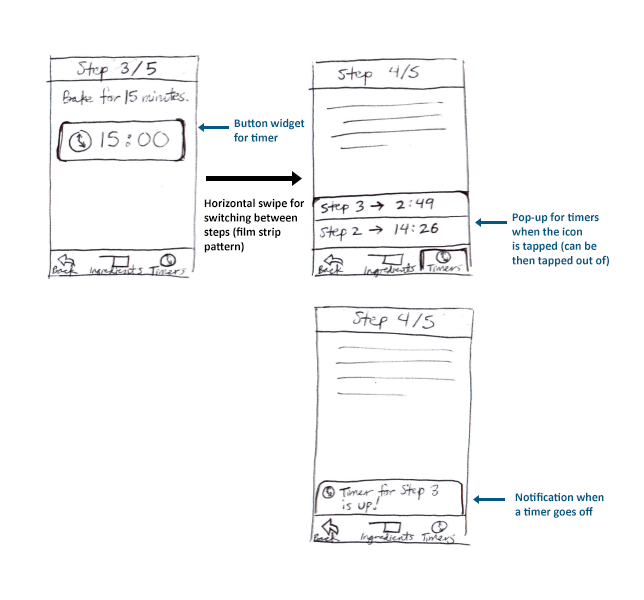 Step 3/5
Bake for 15 minutes.
15:00
Back Ingredients Timers
Button widget
for timer
Horizontal swipe for
switching between
steps (film strip
pattern)
Step 4/5
Step 3 → 2:49
Step 2 → 14:26
Back Ingredients Timers
Pop-up for timers
when the icon
is tapped (can be
then tapped out of)
Step 4/5
Timer for Step 3
is up!
Back Ingredients Timers
Notification when
a timer goes off